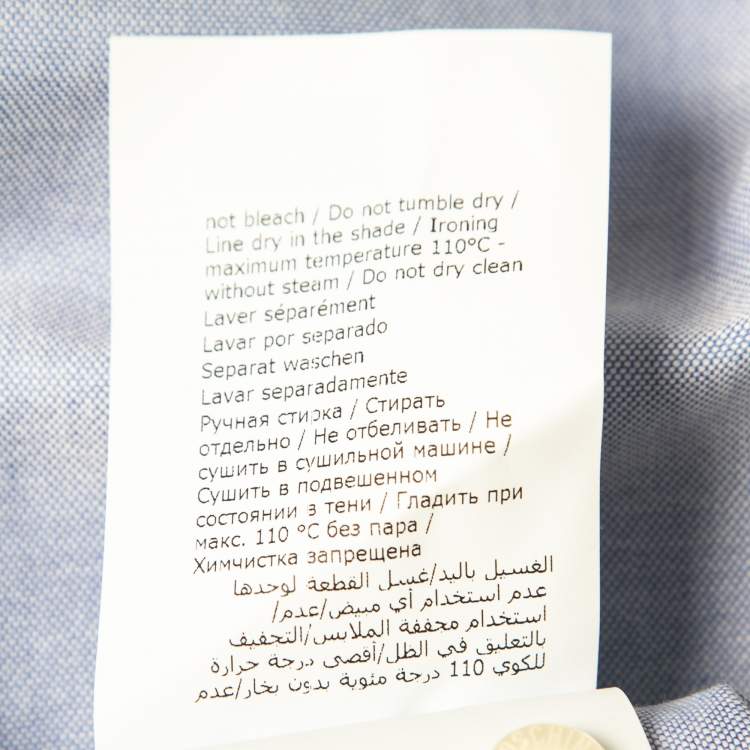 not bleach / Do not tumble dry /
Line dry in the shade / Ironing
maximum temperature 110°C -
without steam / Do not dry clean
Laver séparément
Lavar por separado
Separat waschen
Lavar separadamente
Ручная стирка / Стирать
отдельно / Не отбеливать / Не
сушить в сушильной машине /
Сушить в подвешенном
состоянии в тени / Гладить при
макс. 110 °C без пара /
Химчистка запрещена
الغسيل باليد/غسل القطعة لوحدها
عدم استخدام أي مبيض/عدم/
استخدام مجففة الملابس/التجفيف
بالتعليق في الظل/أقصى درجة حرارة
للكوي 110 درجة مئوية بدون بخار/عدم